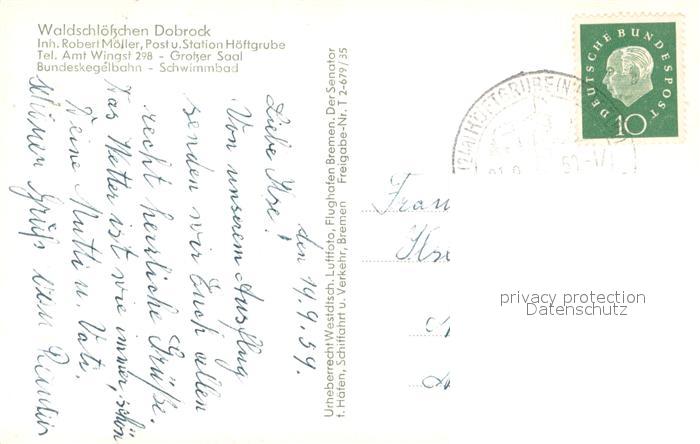 Waldschlößchen Dobrock
Inh. Robert Möller, Post u. Station Höftgrube
Tel. Amt Wingst 298 - Großer Saal
Bundeskegelbahn - Schwimmbad
den 19.9.59.
Liebe Ilse!
Von unserem Ausflug
senden wir Euch allen
recht herzliche Grüße.
Das Wetter ist wie immer, schön
Deine Mutti u. Vati.
Gruß
Urheberrecht Westdtsch. Luftfoto, Flughafen Bremen. Der Senator
f. Häfen, Schiffahrt u. Verkehr, Bremen Freigabe-Nr. T 2-679/35
DEUTSCHE BUNDESPOST
10
HÖFTGRUBE
Frau
Ilse
privacy protection
Datenschutz